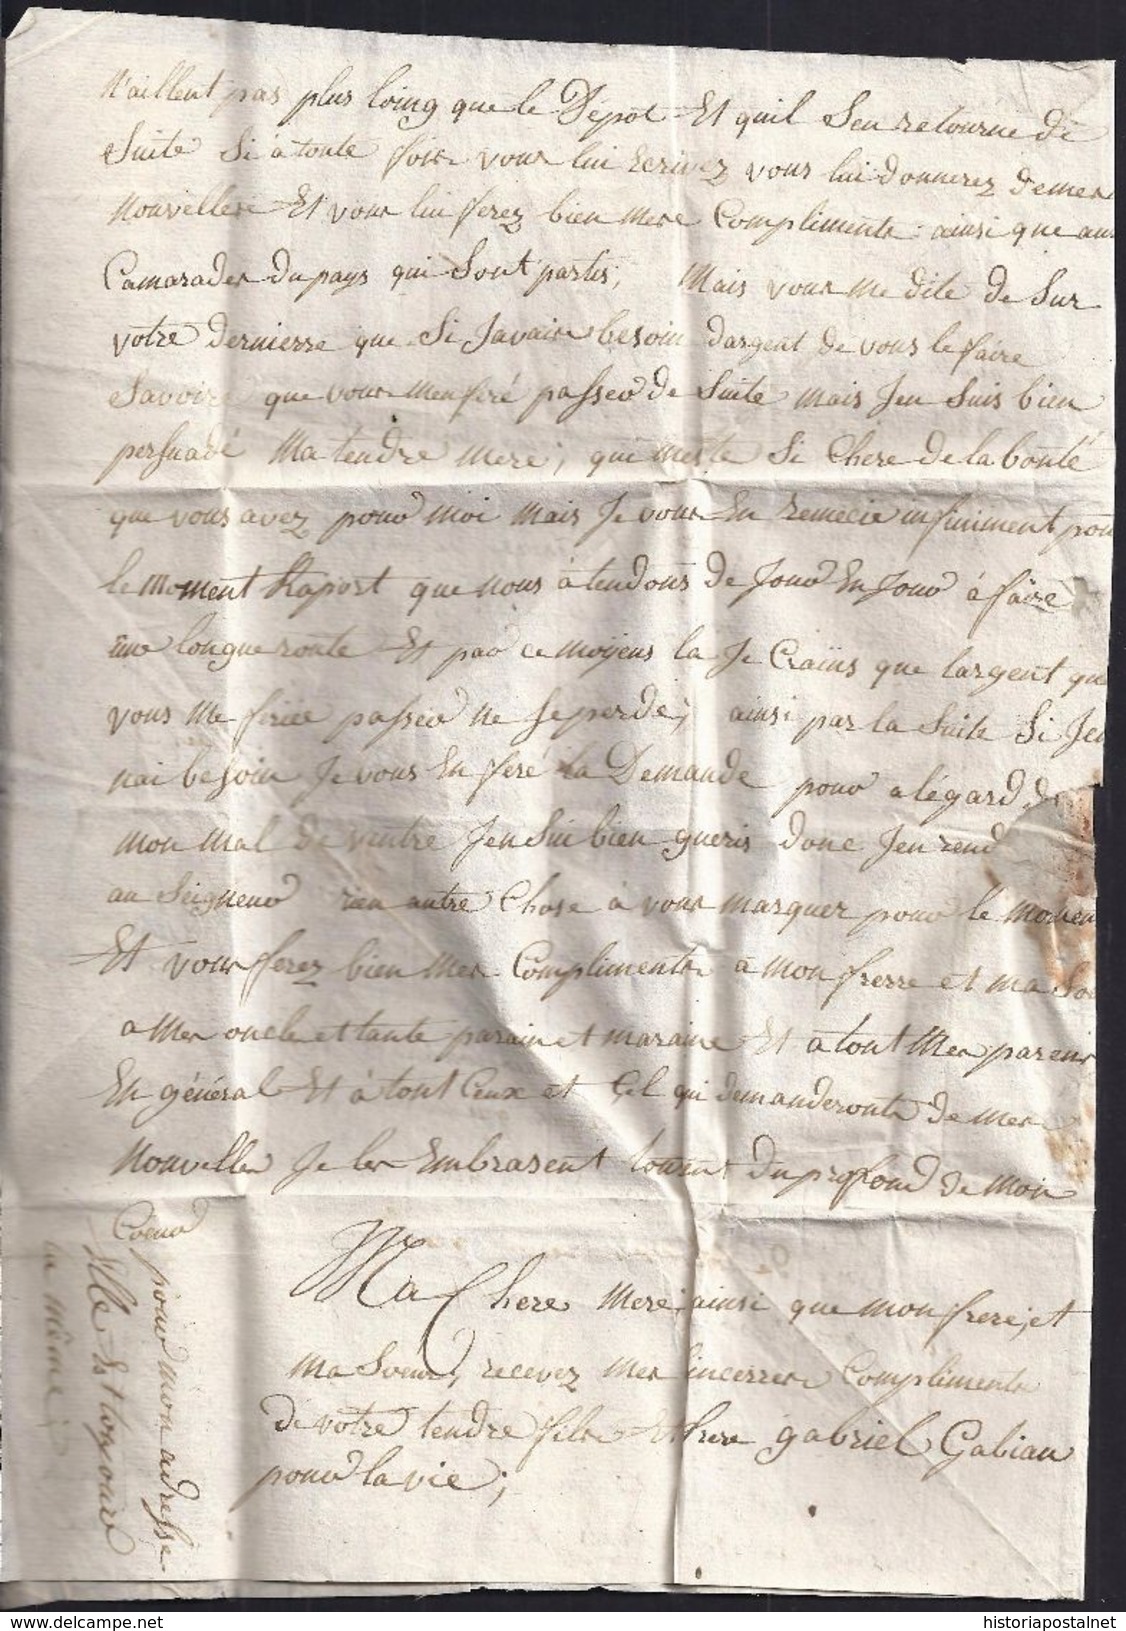 N'aillent pas plus loing que le Dépot Et quil Sen retourne de
Suite Si à toute fois vous lui Ecrivez vous lui donnerez demes
nouvelles Et vous lui ferez bien mes Compliments ainsi que aux
Camarades du pays qui Sont partis, Mais vous me dite de Sur
votre dernierre que Si Javais besoin dargent de vous le faire
Savoire que vous menferé passer de Suite mais Jen Suis bien
persuadé Ma tendre mere, qui meste Si Chere de la bonté
que vous avez pour moi mais Je vous En remecie infiniment pour
le moment Raport que nous àtendons de Jour En Jour à faire
une longue route Et par ce moÿens la Je Crains que largent que
vous me feriee passer ne Seperde, ainsi par la Suite Si Jen
nai besoin Je vous En feré la Demande pour alégard de
mon mal de ventre Jen Sui bien gueris donc Jen rend
au Seigneur rien autre Chose à vous marquer pour le momen
Et vous ferez bien mes Compliments à mon frerre et ma Soe
a mes oncle et tante parain et maraine Et à tout mes parens
En général Et à tout Ceux et Cel qui demanderonts de mes
Nouvelles Je les Embrasent toutent du profond de mon
Coeur
Ma Chere mere, ainsi que mon frere, et
ma Soeur, recevez mes Sincerres Compliments
de votre tendre fils Et frere gabriel Gabian
pour la vie;
pour mon adresse
Elle Est toujours
la même,
historiapostalnet